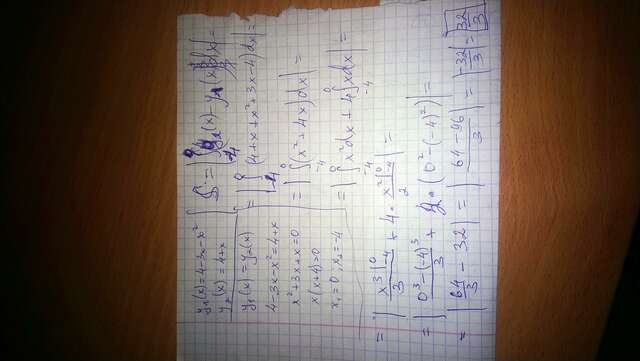 y₁(x) = 4-3x-x²
y₂(x) = 4+x
y₁(x) = y₂(x)
4-3x-x² = 4+x
x²+3x+x=0
x(x+4)=0
x₁=0; x₂=-4
S = |∫₋₄⁰ y₂(x) - y₁(x)dx| =
= |∫₋₄⁰ (4+x+x²+3x-4)dx| =
= |∫₋₄⁰ (x²+4x)dx| =
= |∫₋₄⁰ x²dx + 4∫₋₄⁰ xdx| =
= |x³/3|₋₄⁰ + 4·x²/2|₋₄⁰| =
= |(0³-(-4)³)/3 + 2·(0²-(-4)²)| =
= |64/3 - 32| = |(64-96)/3| = |-32/3| = 32/3